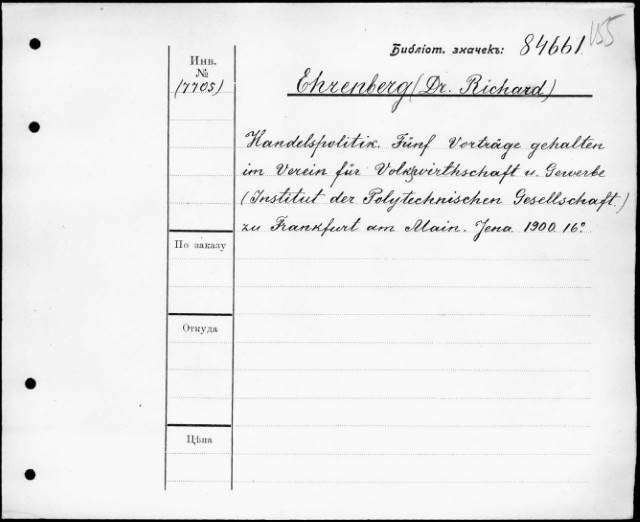 155
Библіот. значекъ: 84661.
Инв.
№
(7705)
Ehrenberg (Dr. Richard)
Handelspolitik. Fünf Vorträge gehalten
im Verein für Volkswirthschaft u. Gewerbe
(Institut der Polytechnischen Gesellschaft.)
zu Frankfurt am Main. Jena 1900. 16º.
По заказу
Откуда
Цѣна